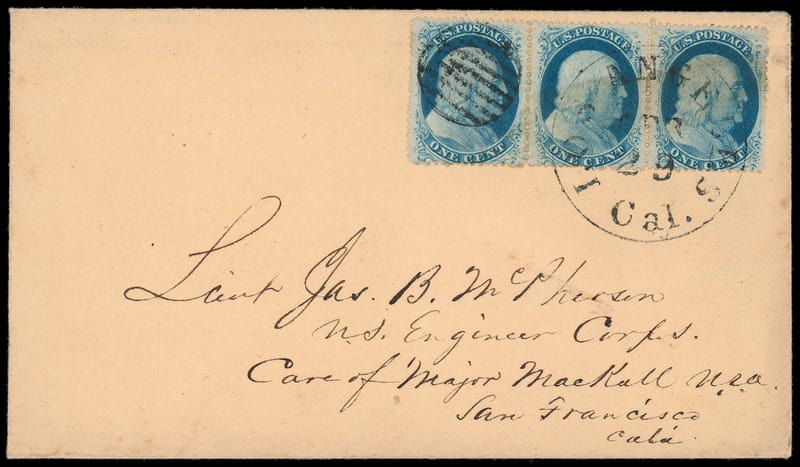 U.S. POSTAGE U.S. POSTAGE U.S. POSTAGE
ONE CENT ONE CENT ONE CENT
LOS ANGELES
29
Cal.
Lieut Jas. B. McPherson
U.S. Engineer Corps.
Care of Major Mackall U.S.A.
San Francisco
Cala.